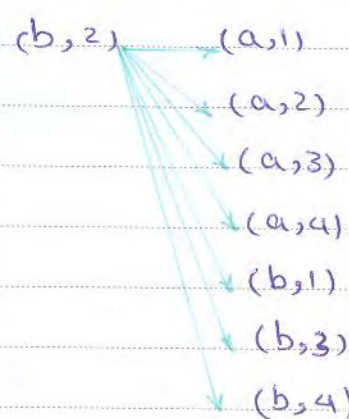 (b,2) (a,1)
(a,2)
(a,3)
(a,4)
(b,1)
(b,3)
(b,4)